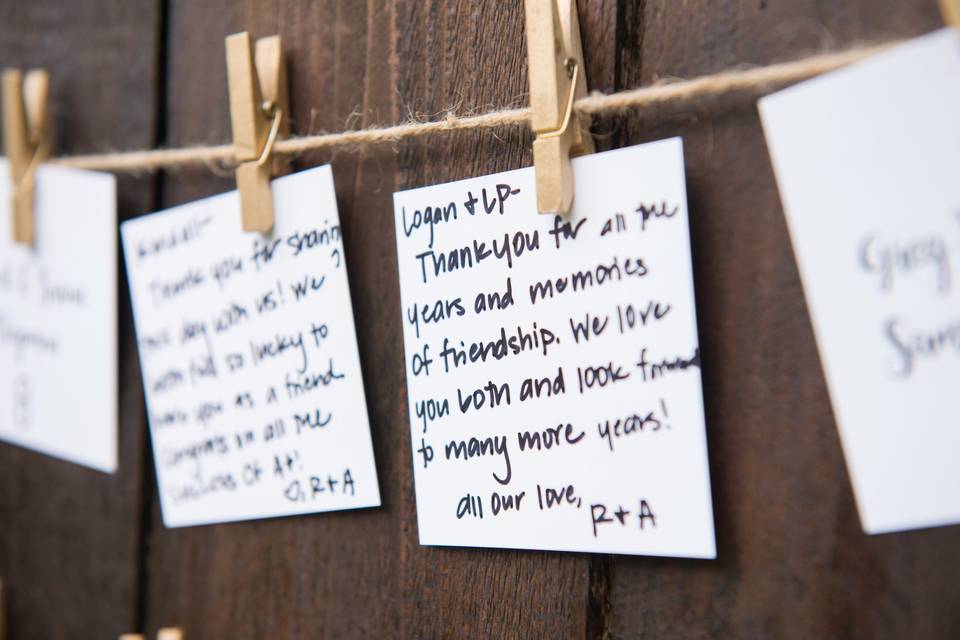 Kendall-
Thank you for sharing
this day with us! We
both feel so lucky to
have you as a friend
Congrats on all the
success of A+!
R+A
Logan + LP-
Thank you for all the
years and memories
of friendship. We love
you both and look forward
to many more years!
all our love,
R+A
Greg